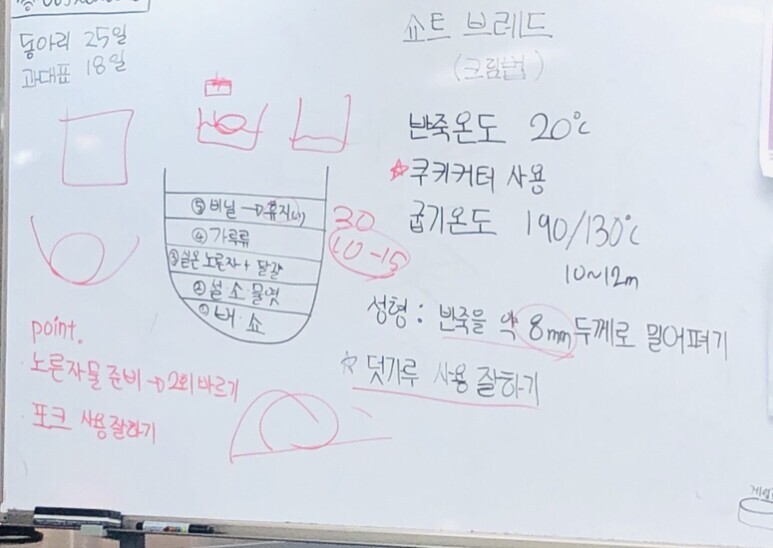 동아리 25일
과대표 18일
쇼트 브레드
(크림법)
반죽온도 20℃
☆쿠키커터 사용
굽기온도 190/130℃
10~12m
성형 : 반죽을 약 8mm 두께로 밀어펴기
☆ 덧가루 사용 잘하기
⑤ 비닐 → 휴지(냉)
④ 가루류
③ 실온 노른자 + 달걀
② 설·소·물엿
① 버·쇼
30
10-15
point.
· 노른자물 준비 → 2회 바르기
· 포크 사용잘하기